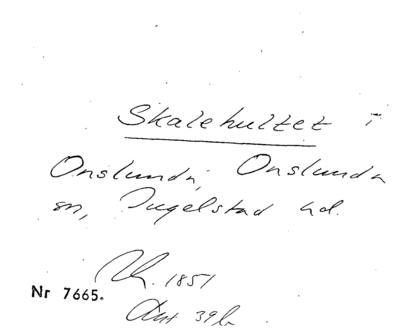 Skalehultet i
Onslunda, Onslunda
sn, Ingelstad hd.
1851
Nr 7665.
39